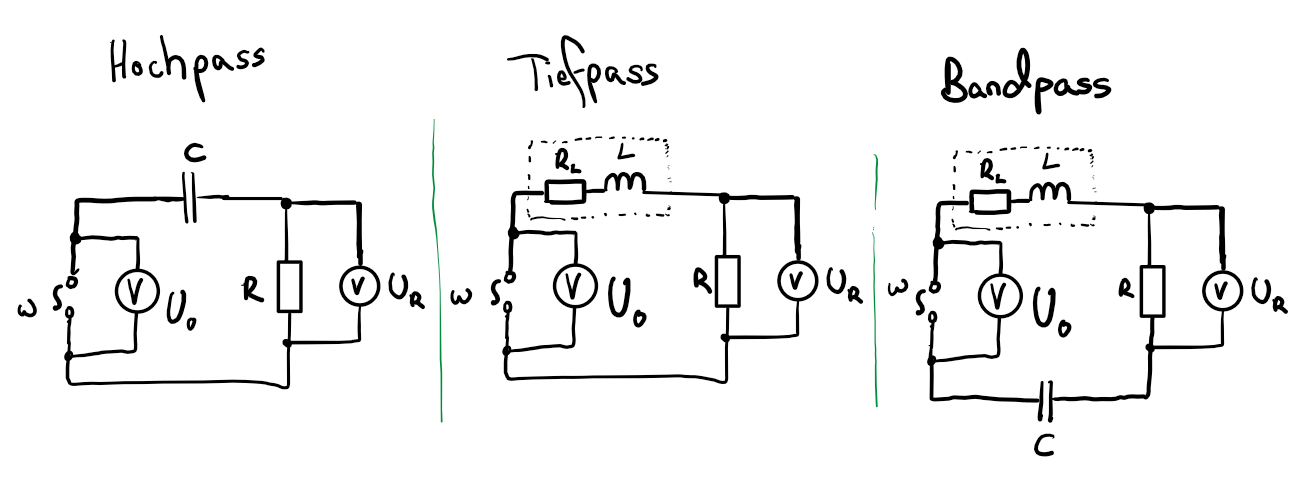 Hochpass
C
ω
S
V
U₀
R
V
U_R
Tiefpass
R_L
L
ω
S
V
U₀
R
V
U_R
Bandpass
R_L
L
ω
S
V
U₀
R
V
U_R
C